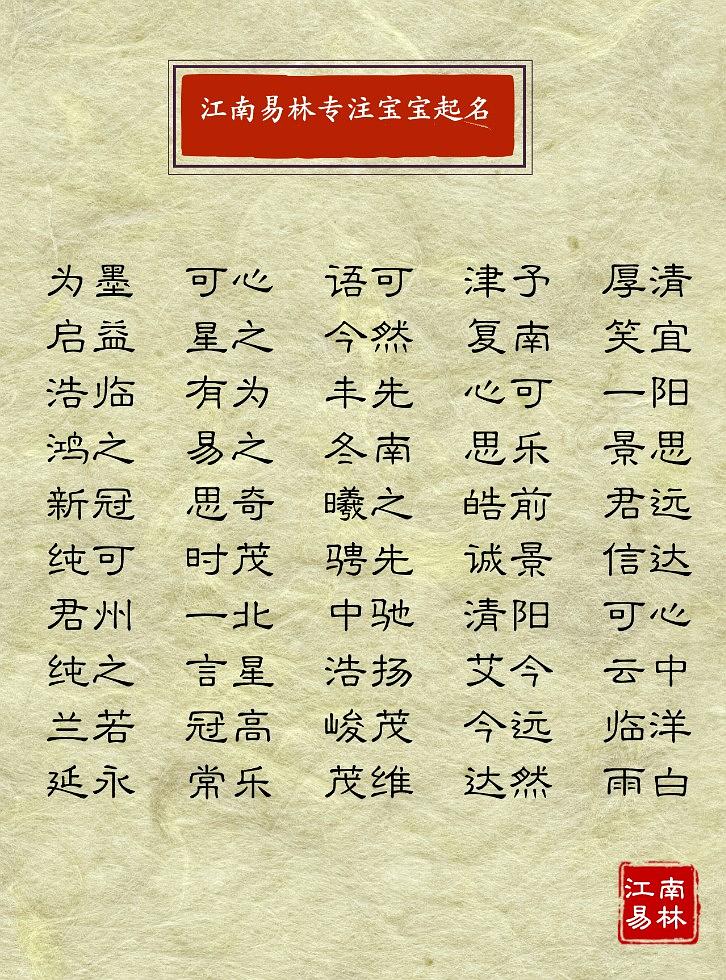 江南易林专注宝宝起名
为墨 可心 语可 津予 厚清
启益 星之 今然 复南 笑宜
浩临 有为 丰先 心可 一阳
鸿之 易之 冬南 思乐 景思
新冠 思奇 曦之 皓前 君远
纯可 时茂 骋先 诚景 信达
君州 一北 中驰 清阳 可心
纯之 言星 浩扬 艾今 云中
兰若 冠高 峻茂 今远 临洋
延永 常乐 茂维 达然 雨白
江南
易林